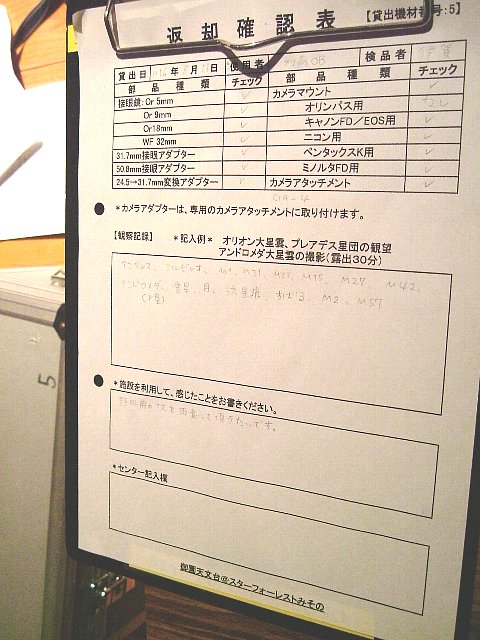 返却確認表 【貸出機材番号:5】
貸出日 H16年8月 日 使用者 検品者
部品種類 チェック 部品種類 チェック
接眼鏡:Or 5mm ✓ カメラマウント
Or 9mm ✓ オリンパス用
Or18mm ✓ キャノンFD/EOS用 ✓
WF 32mm ✓ ニコン用 ✓
31.7mm接眼アダプター ✓ ペンタックスK用 ✓
50.8mm接眼アダプター ✓ ミノルタFD用 ✓
24.5→31.7mm変換アダプター ✓ カメラアタッチメント ✓
OA-4
*カメラアダプターは、専用のカメラアタッチメントに取り付けます。
【観察記録】 *記入例* オリオン大星雲、プレアデス星団の観望
アンドロメダ大星雲の撮影(露出30分)
アンタレス、アルビレオ、M31、M33、M15、M27、M42、
アンドロメダ、金星、月、流星痕、すばる、M2、M57
*施設を利用して、感じたことをお書きください。
*センター記入欄
御園天文台@スターフォーレストみその
5